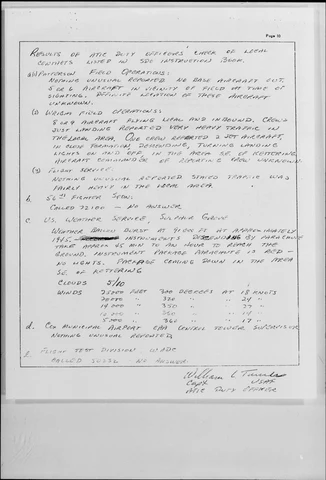 Page 10
RESULTS OF ATIC DUTY OFFICERS' CHECK OF LOCAL
CONTACTS LISTED IN SDO INSTRUCTION BOOK.
PATTERSON FIELD OPERATIONS:
NOTHING UNUSUAL REPORTED. NO BASE AIRCRAFT OUT.
5 OR 6 AIRCRAFT IN VICINITY OF FIELD AT TIME OF
SIGHTING. DEFINITE LOCATION OF THESE AIRCRAFT
UNKNOWN.
(2) WRIGHT FIELD OPERATIONS:
8 OR 9 AIRCRAFT FLYING LOCAL AND INBOUND. CREWS
JUST LANDING REPORTED VERY HEAVY TRAFFIC IN
THE LOCAL AREA. ONE CREW REPORTED 2 JET AIRCRAFT,
IN CLOSE FORMATION, DESCENDING, TURNING LANDING
LIGHTS ON AND OFF IN THE AREA SE OF KETTERING.
AIRCRAFT COMMANDER OF REPORTING CREW UNKNOWN.
(3) FLIGHT SERVICE
NOTHING UNUSUAL REPORTED STATED TRAFFIC WAS
FAIRLY ACTIVE IN THE LOCAL AREA.
b. 56TH FIGHTER SQDN:
CALLED 72100 - NO ANSWER
C. US. WEATHER SERVICE, SULPHUR GROVE
WEATHER BALLOON BURST AT 91,000 FT AT APPROXIMATELY
1945. INSTRUMENTS DESCENDING BY PARACHUTE
TAKE APPROX 45 MIN TO AN HOUR TO REACH THE
GROUND. INSTRUMENT PACKAGE PARACHUTE IS RED -
NO LIGHTS. PACKAGE COMING DOWN IN THE AREA
SE OF KETTERING
CLOUDS 5/10
WINDS 25000 FEET 340 DEGREES AT 18 KNOTS
20000 " 330 " " 24 "
14000 " 350 " " 37 "
10000 " 350 " "
5000 " 360 " " 17 "
d. COX MUNICIPAL AIRPORT CAA CONTROL TOWER SUPERVISOR
NOTHING UNUSUAL REPORTED.
E. FLIGHT TEST DIVISION WADC
CALLED NO ANSWER
William L
Capt USAF
ATIC DUTY OFFICER